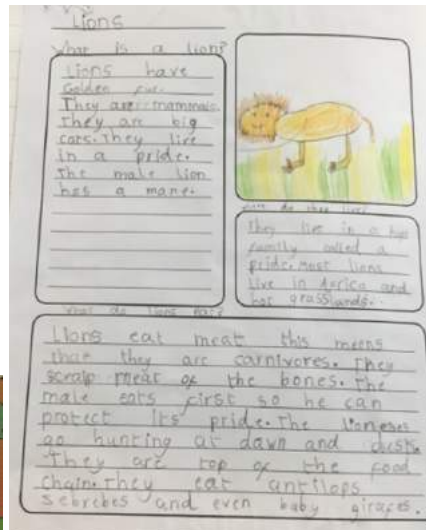 Lions
What is a lion?
Lions have
Golden fur.
They are mammals.
They are big
cats. They live
in a pride.
The male lion
has a mane.
do they live?
They live in a big
family called a
pride. Most lions
live in Africa and
hot grasslands.
What do lions eat?
Lions eat meat this means
that they are carnivores. They
scraip meat of the bones. The
male eats first so he can
protect its pride. The lioneses
go hunting at dawn and dusk.
They are top of the food
chain. They eat antilops
sebrebes and even baby girafes.